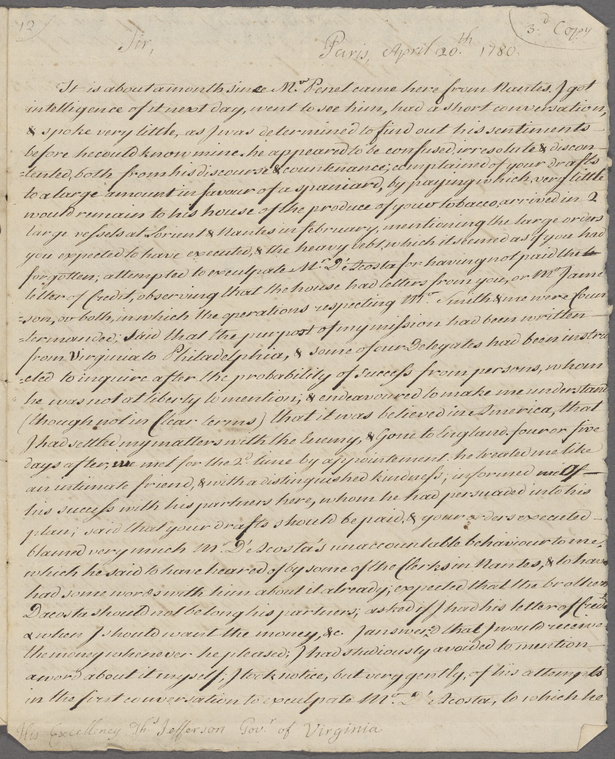 12
3.d Copy
Sir,
Paris, April 20.th 1780.
It is about a month since Mr. Penet came here from Nantes, I got
intelligence of it next day, went to see him, had a short conversation,
& spoke very little, as I was determined to find out his sentiments
before he could know mine. he appeared to be confused, irresolute & discon
-tented, both from his discourse & countenance; complained of your drafts
to a large amount in favour of a spaniard, by paying which very little
would remain to his house of the produce of your tobacco, arrived in 2
large vessels at Lorient & Nantes in february, mentioning the large orders
you expected to have executed, & the heavy debt which it seemed as if you had
forgotten; attempted to exculpate Mr. D'Acosta for having not paid the
letter of Credit, observing that the house had letters from you, or Mr. Jame
-son, or both, in which the operations respecting Mr. Smith & me were coun
-termanded; said that the purport of my mission had been written
from Virginia to Philadelphia, & some of our Delegates had been instru
-cted to inquire after the probability of success from persons, whom
he was not at liberty to mention; & endeavoured to make me understand
(though not in Clear terms) that it was believed in America, that
I had settled my matters with the Enemy, & Gone to England. four or five
days after, we met for the 2.d time by appointement. he treated me like
an intimate friend, & with a distinguished kindness; informed me Of
his success with his partners here, whom he had persuaded into his
plan; said that your drafts should be paid, & your orders executed
blamed very much Mr. D'Acosta's unaccountable behaviour to me,
which he said to have heared of by some of the Clerks in Nantes, & to have
had some words with him about it already; expected that the brother
Dacosta should not be long his partners; asked if I had his letter of Credit
& when I should want the money, &c. I answer'd that I would receive
the money whenever he pleased; I had studiously avoided to mention
a word about it myself; I took notice, but very gently, of his attempts
in the first conversation to exculpate Mr. D'Acosta, to which he
His Excellency Ths. Jefferson Govr. of Virginia